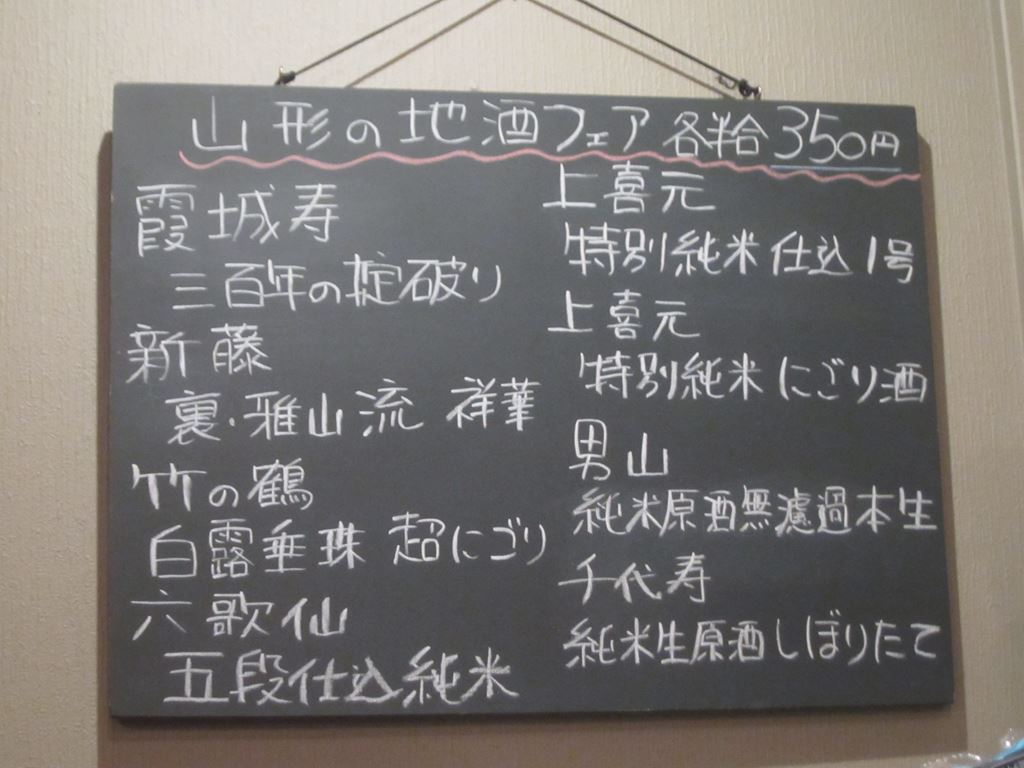 山形の地酒フェア 各種 350円
霞城寿
三百年の掟破り
新藤
裏・雅山流 祥華
竹の鶴
白露垂珠 超にごり
六歌仙
五段仕込純米
上喜元
特別純米 仕込1号
上喜元
特別純米 にごり酒
男山
純米原酒無濾過本生
千代寿
純米生原酒しぼりたて